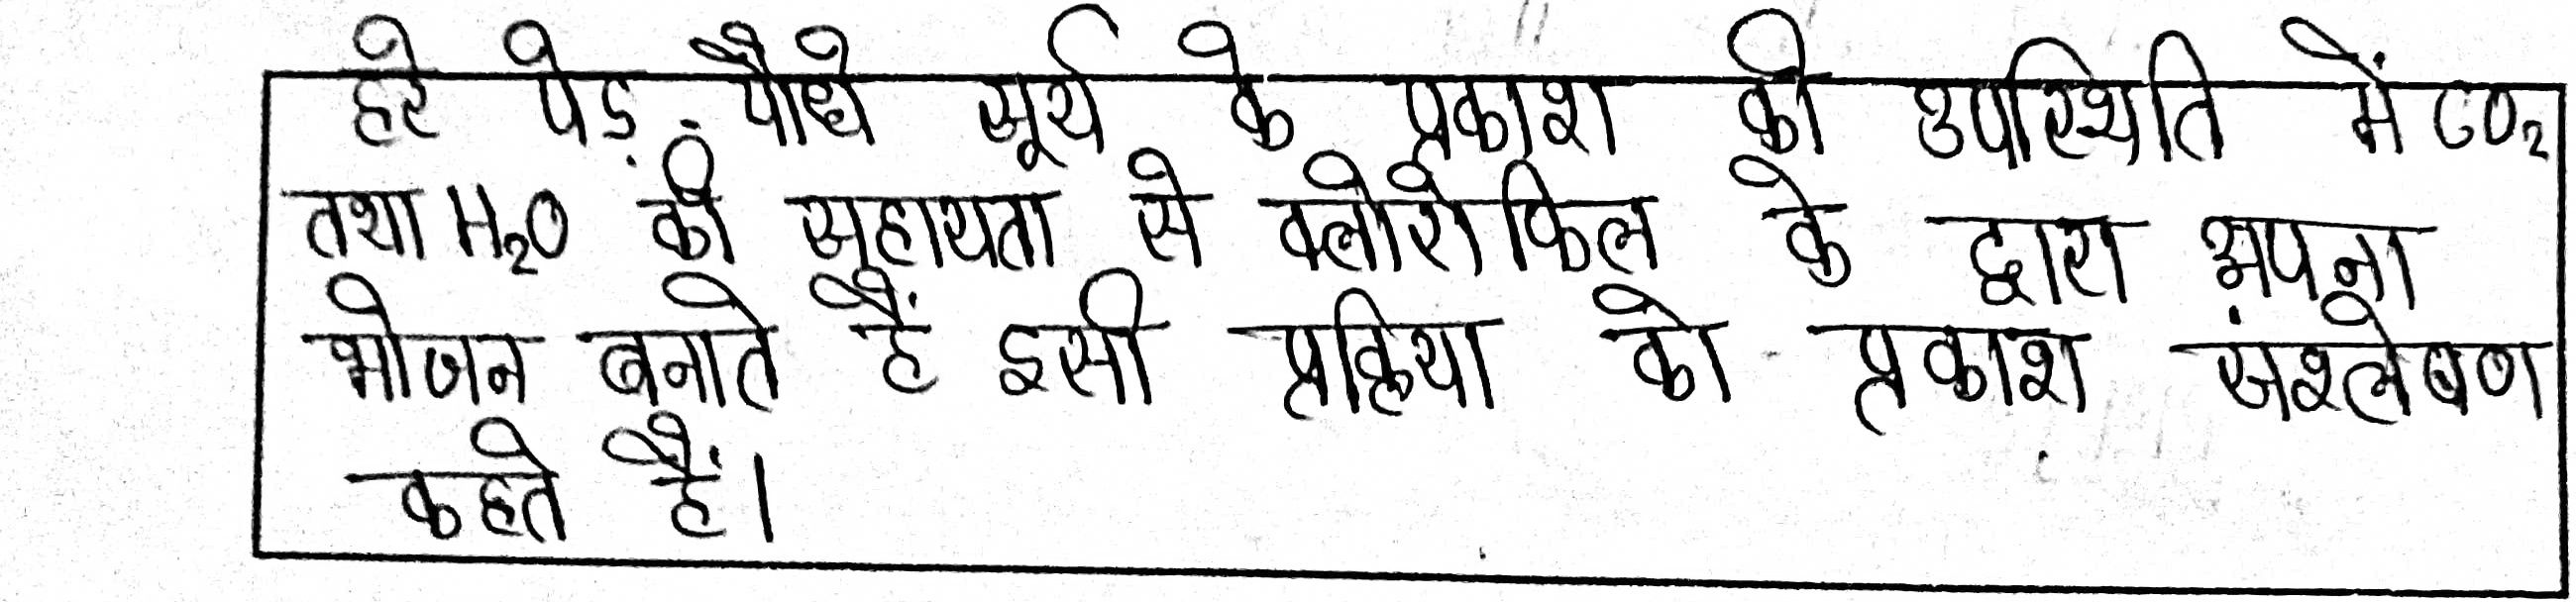 हरे पेड़-पौधे सूर्य के प्रकाश की उपस्थिति में CO₂
तथा H₂O की सहायता से क्लोरोफिल के द्वारा अपना
भोजन बनाते हैं इसी प्रक्रिया को प्रकाश संश्लेषण
कहते हैं।